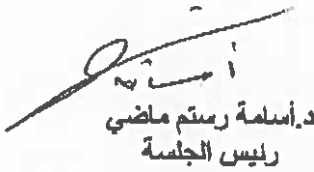 د.أسامة رستم ماضي
رئيس الجلسة